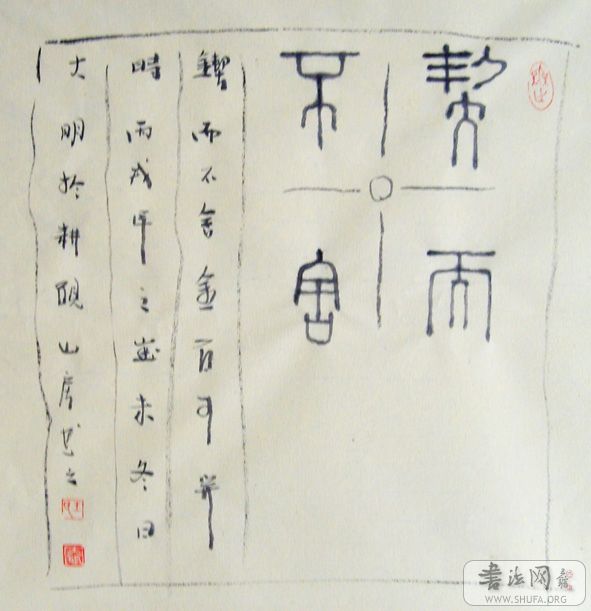 契而
不舍
鍥而不舍金石可
時丙戌年之歲末冬日
大明於耕硯山房書之
書法网
WWW.SHUFA.ORG